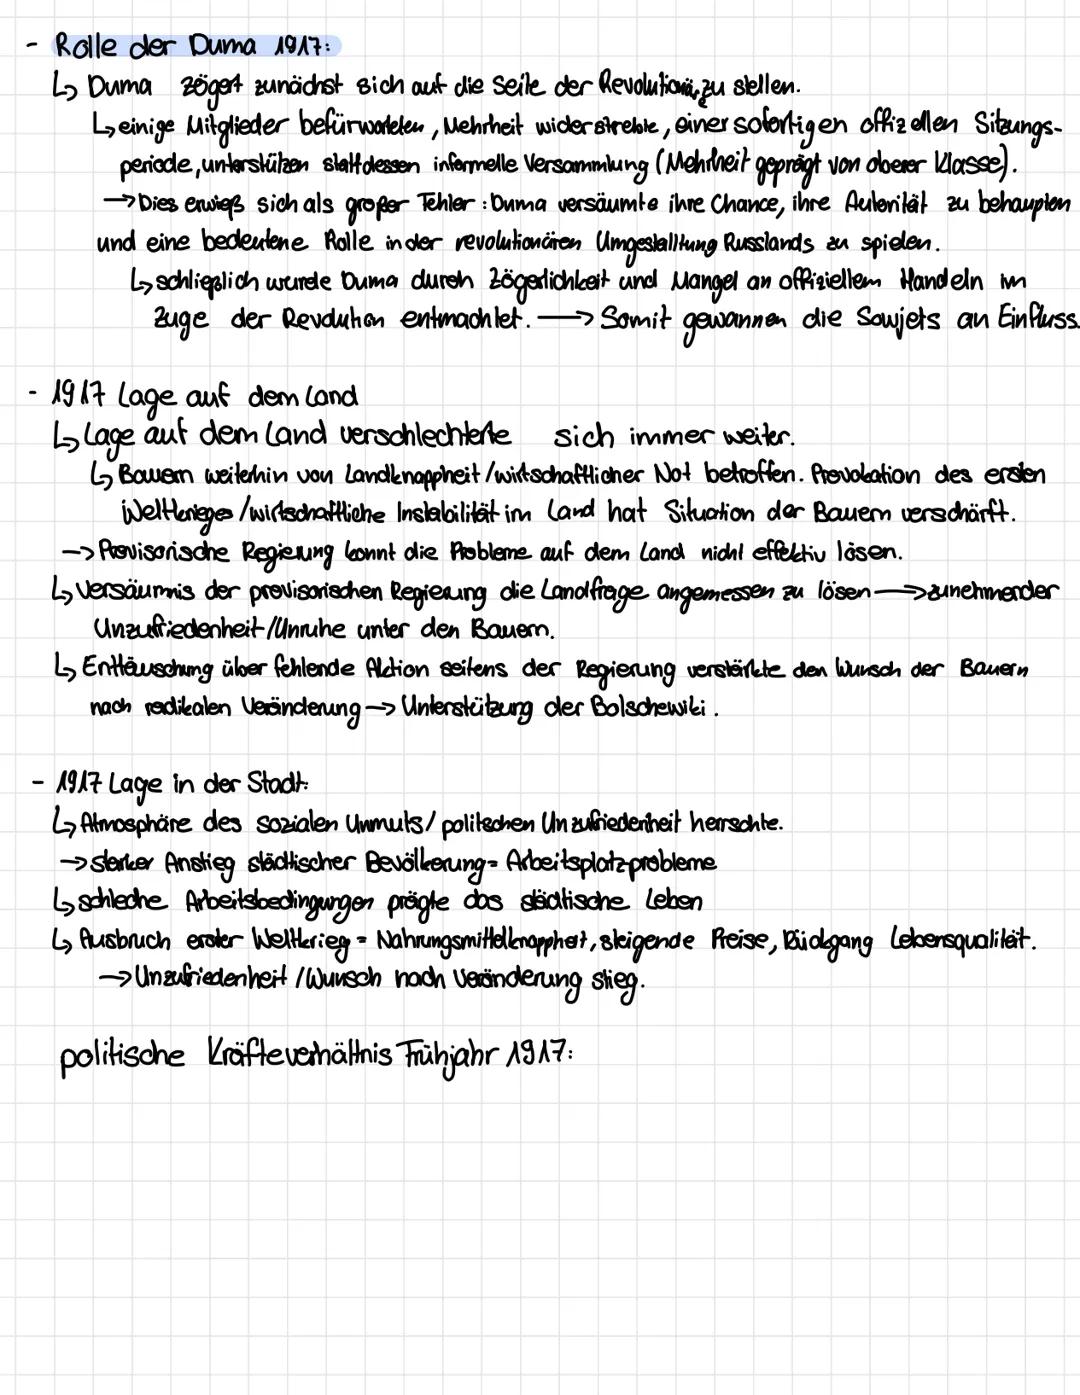 - Rolle der Duma 1917:
↳ Duma zögert zunächst sich auf die Seite der Revolutionäre zu stellen.
↳ einige Mitglieder befürworteten, Mehrheit widerstrebte, einer sofortigen offiziellen Sitzungs-
periode, unterstützen stattdessen informelle Versammlung (Mehrheit geprägt von oberer Klasse).
→ Dies erwieß sich als großer Fehler: Duma versäumte ihre Chance, ihre Autorität zu behaupten
und eine bedeutene Rolle in der revolutionären Umgestalltung Russlands zu spielen.
↳ schließlich wurde Duma durch Zögerlichkeit und Mangel an offiziellem Handeln im
Zuge der Revolution entmachtet. → Somit gewannen die Sowjets an Einfluss.
- 1917 Lage auf dem Land
↳ Lage auf dem Land verschlechterte sich immer weiter.
↳ Bauern weiterhin von Landknappheit/wirtschaftlicher Not betroffen. Provokation des ersten
Weltkrieges/wirtschaftliche Instabilität im Land hat Situation der Bauern verschärft.
→ Provisorische Regierung konnt die Probleme auf dem Land nicht effektiv lösen.
↳ Versäumnis der provisorischen Regierung die Landfrage angemessen zu lösen → zunehmender
Unzufriedenheit/Unruhe unter den Bauern.
↳ Enttäuschung über fehlende Aktion seitens der Regierung verstärkte den Wunsch der Bauern
nach radikalen Veränderung → Unterstützung der Bolschewiki.
- 1917 Lage in der Stadt:
↳ Atmosphäre des sozialen Unmuts/ politschen Unzufriedenheit herrschte.
→ starker Anstieg städtischer Bevölkerung = Arbeitsplatzprobleme
↳ schleche Arbeitsbedingungen prägte das städtische Leben
↳ Ausbruch erster Weltkrieg = Nahrungsmittelknappheit, steigende Preise, Rückgang Lebensqualität.
→ Unzufriedenheit/Wunsch nach Veränderung stieg.
politische Kräfteverhältnis Frühjahr 1917: